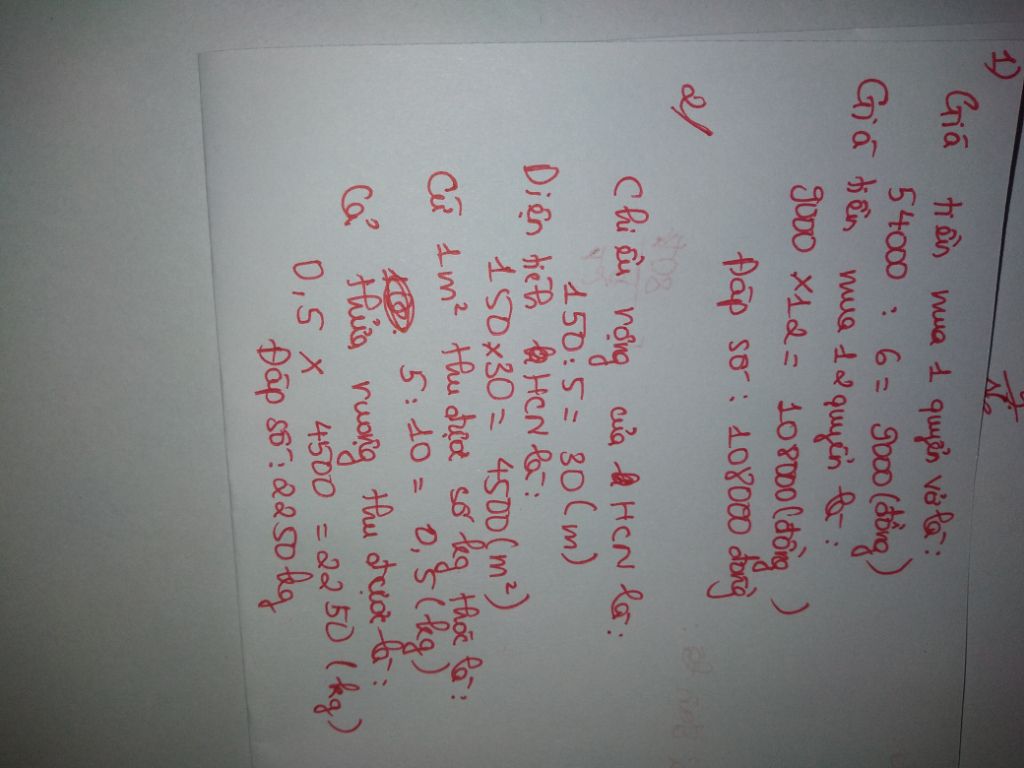 1)
Giá tiền mua 1 quyển vở là:
54000 : 6 = 9000 (đồng)
Giá tiền mua 12 quyển là:
9000 x 12 = 108000 (đồng)
Đáp số: 108000 đồng
2/
Chiều rộng của HCN là:
150 : 5 = 30 (m)
Diện tích HCN là:
150 x 30 = 4500 (m²)
Cứ 1 m² thu được số kg thóc là:
5 : 10 = 0,5 (kg)
Cả thửa ruộng thu được là:
0,5 x 4500 = 2250 (kg)
Đáp số: 2250 kg